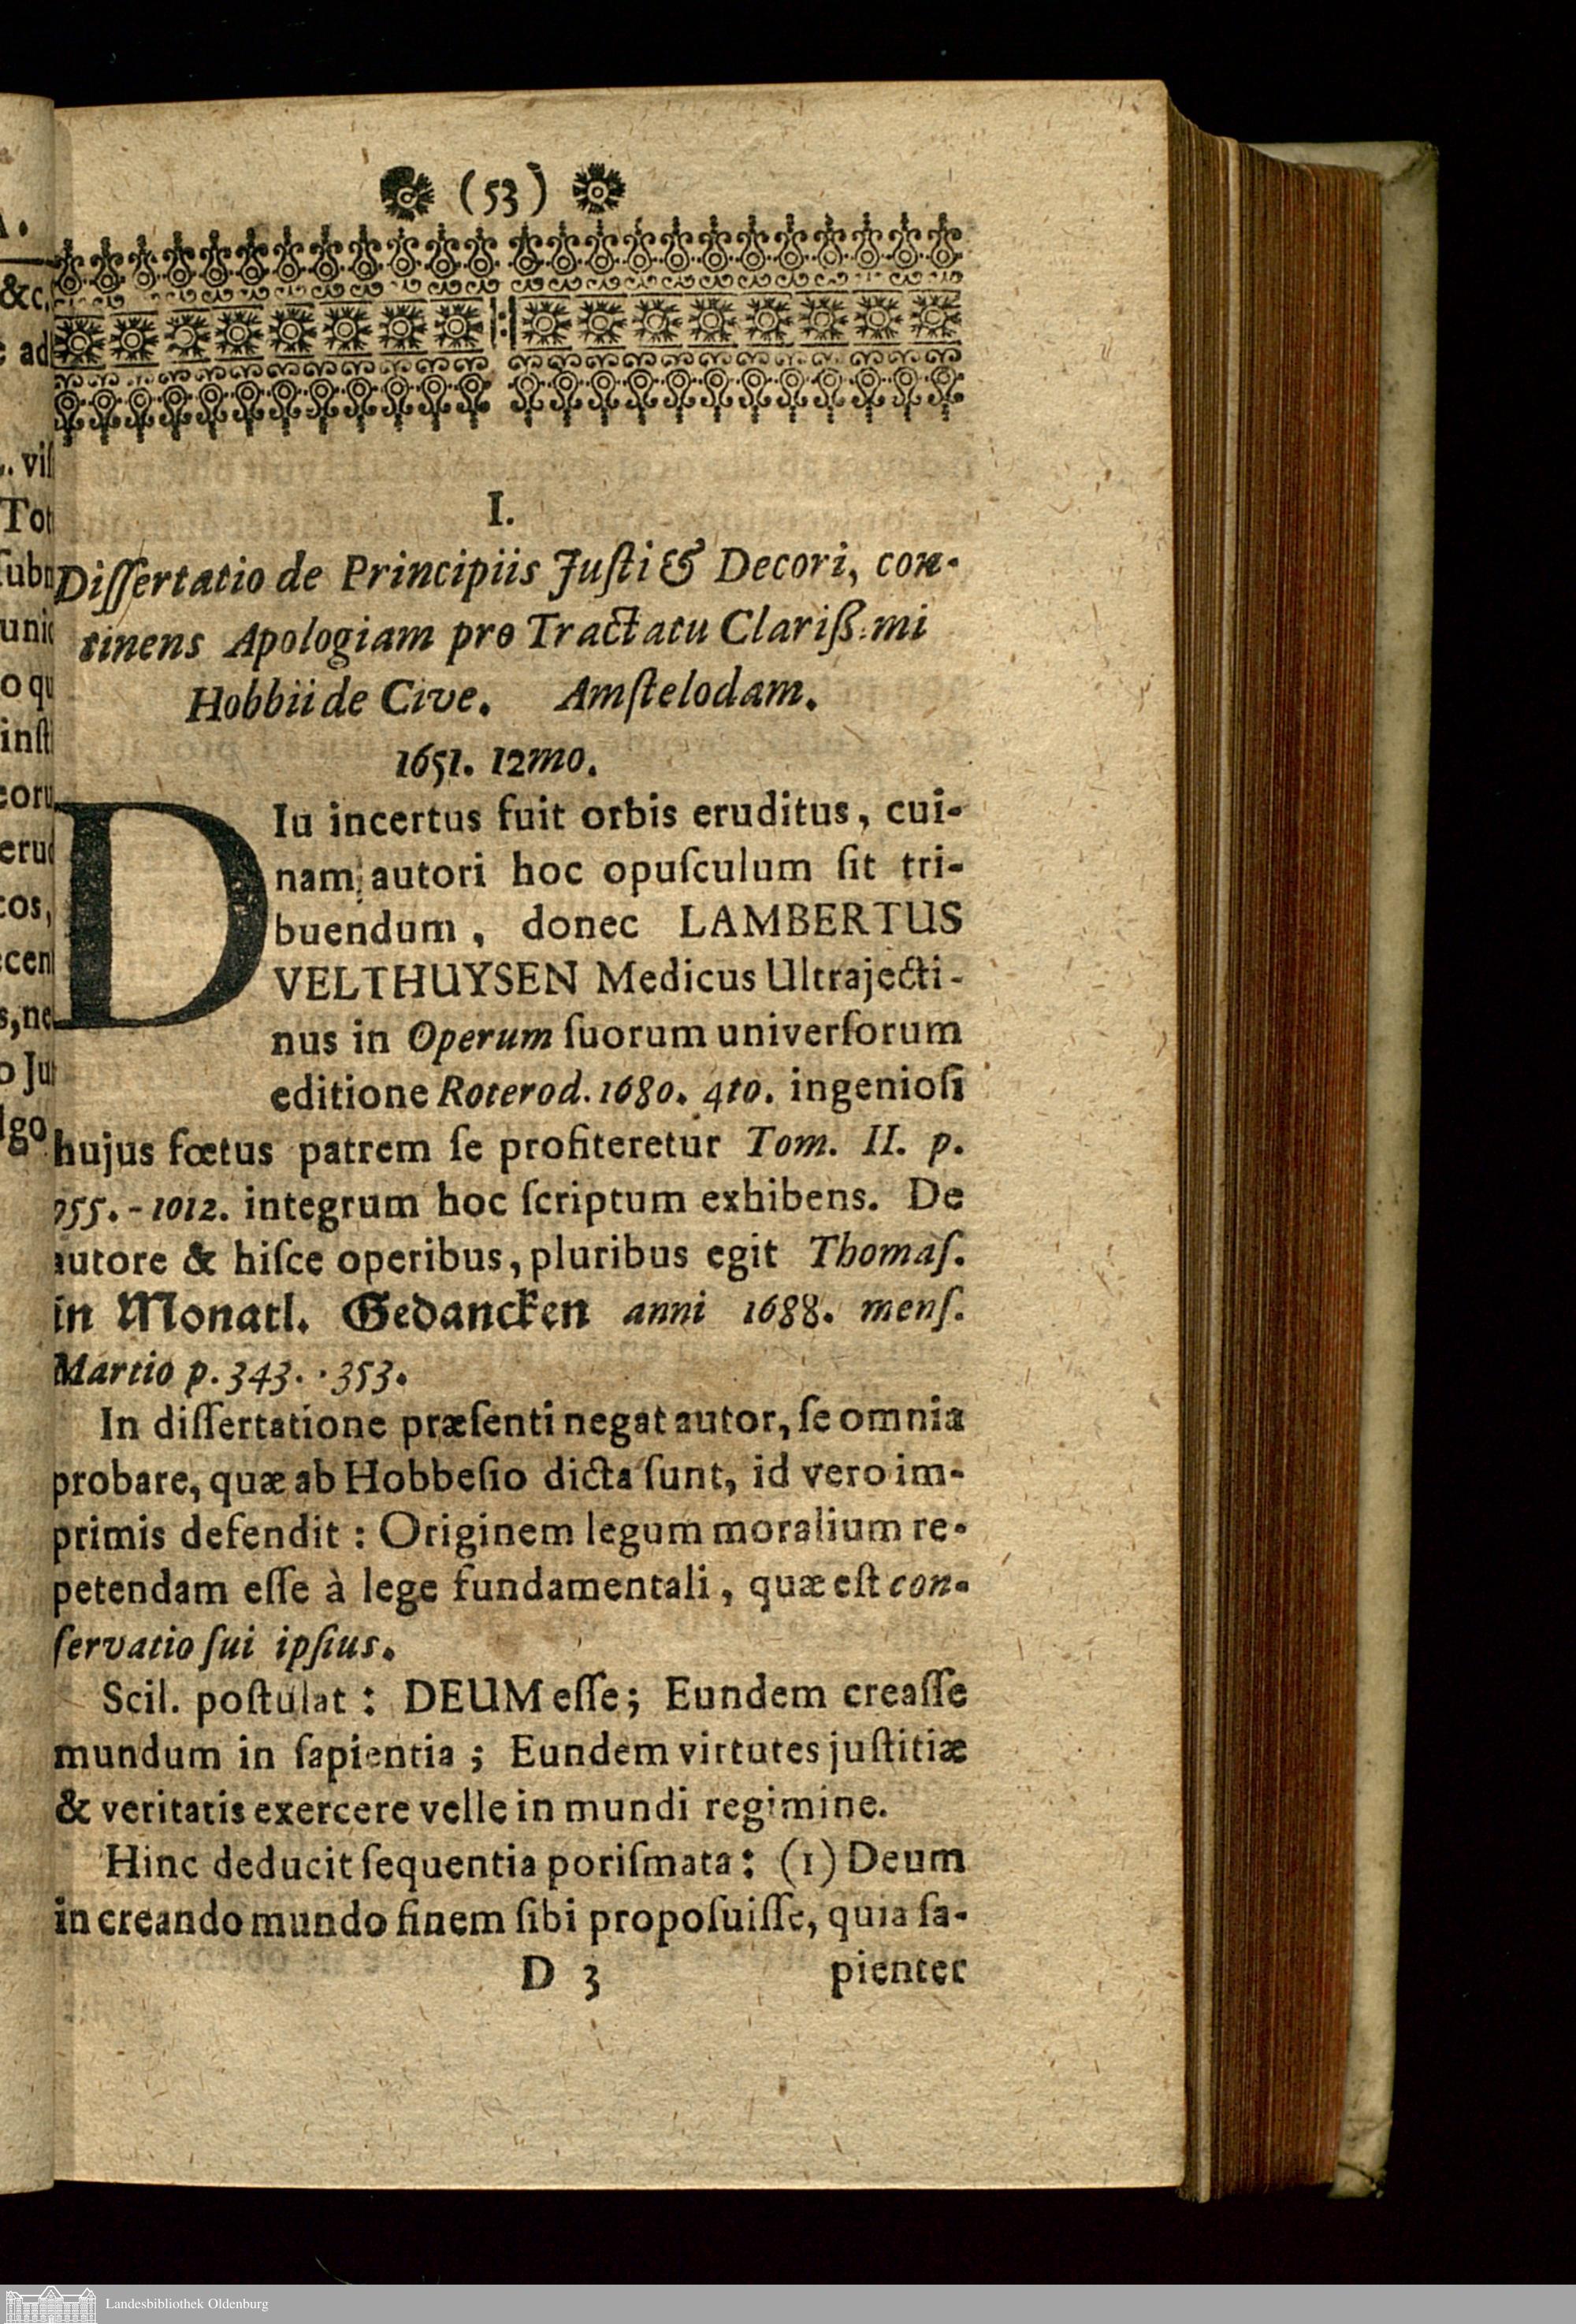 (53)
I.
Dissertatio de Principiis Justi & Decori, con-
tinens Apologiam pro Tractatu Clariß:mi
Hobbii de Cive. Amstelodam.
1651. 12mo.
DIu incertus fuit orbis eruditus, cui-
nam autori hoc opusculum sit tri-
buendum, donec LAMBERTUS
VELTHUYSEN Medicus Ultrajecti-
nus in Operum suorum universorum
editione Roterod. 1680. 4to. ingeniosi
hujus fœtus patrem se profiteretur Tom. II. p.
955.-1012. integrum hoc scriptum exhibens. De
autore & hisce operibus, pluribus egit Thomas.
in Monatl. Gedancken anni 1688. mens.
Martio p. 343. . 353.
In dissertatione præsenti negat autor, se omnia
probare, quæ ab Hobbesio dicta sunt, id vero im-
primis defendit : Originem legum moralium re-
petendam esse à lege fundamentali, quæ est con-
servatio sui ipsius.
Scil. postulat : DEUM esse; Eundem creasse
mundum in sapientia ; Eundem virtutes justitiæ
& veritatis exercere velle in mundi regimine.
Hinc deducit sequentia porismata : (1) Deum
in creando mundo finem sibi proposuisse, quia sa-
D 3 pienter
Landesbibliothek Oldenburg